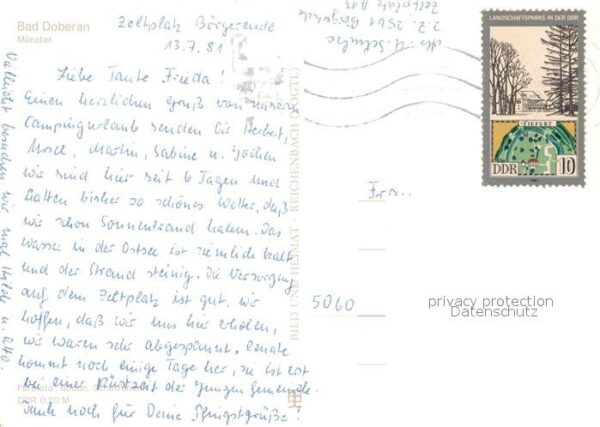 Bad Doberan
Münster
Zeltplatz Börgerende
13.7.81
Liebe Tante Frieda!
Einen herzlichen Gruß von unserem
Campingurlaub senden Dir Herbert,
Martin, Sabine u. Jochen
wir sind hier seit 6 Tagen und
hatten bisher so schönes Wetter, daß
wir schon Sonnenbrand haben. Das
Wasser in der Ostsee ist ziemlich kalt
und der Strand steinig. Die Versorgung
auf dem Zeltplatz ist gut. Wir
hoffen, daß wir uns hier erholen,
wir waren sehr abgespannt. Renate
kommt noch einige Tage her, sie ist erst
bei einer Rüstzeit der Jungen Gemeinde.
Dank noch für Deine Pfingstgrüße!
Vielleicht besuchen wir mal Hilde u. Otto.
DDR 0,20 M
BILD UND HEIMAT · REICHENBACH (VOGTL)
Schulze
z.Z. 2561 Börgerende
Zeltplatz
LANDSCHAFTSPARKS IN DER DDR
TIEFURT
DDR 10
Frau
5060
privacy protection
Datenschutz